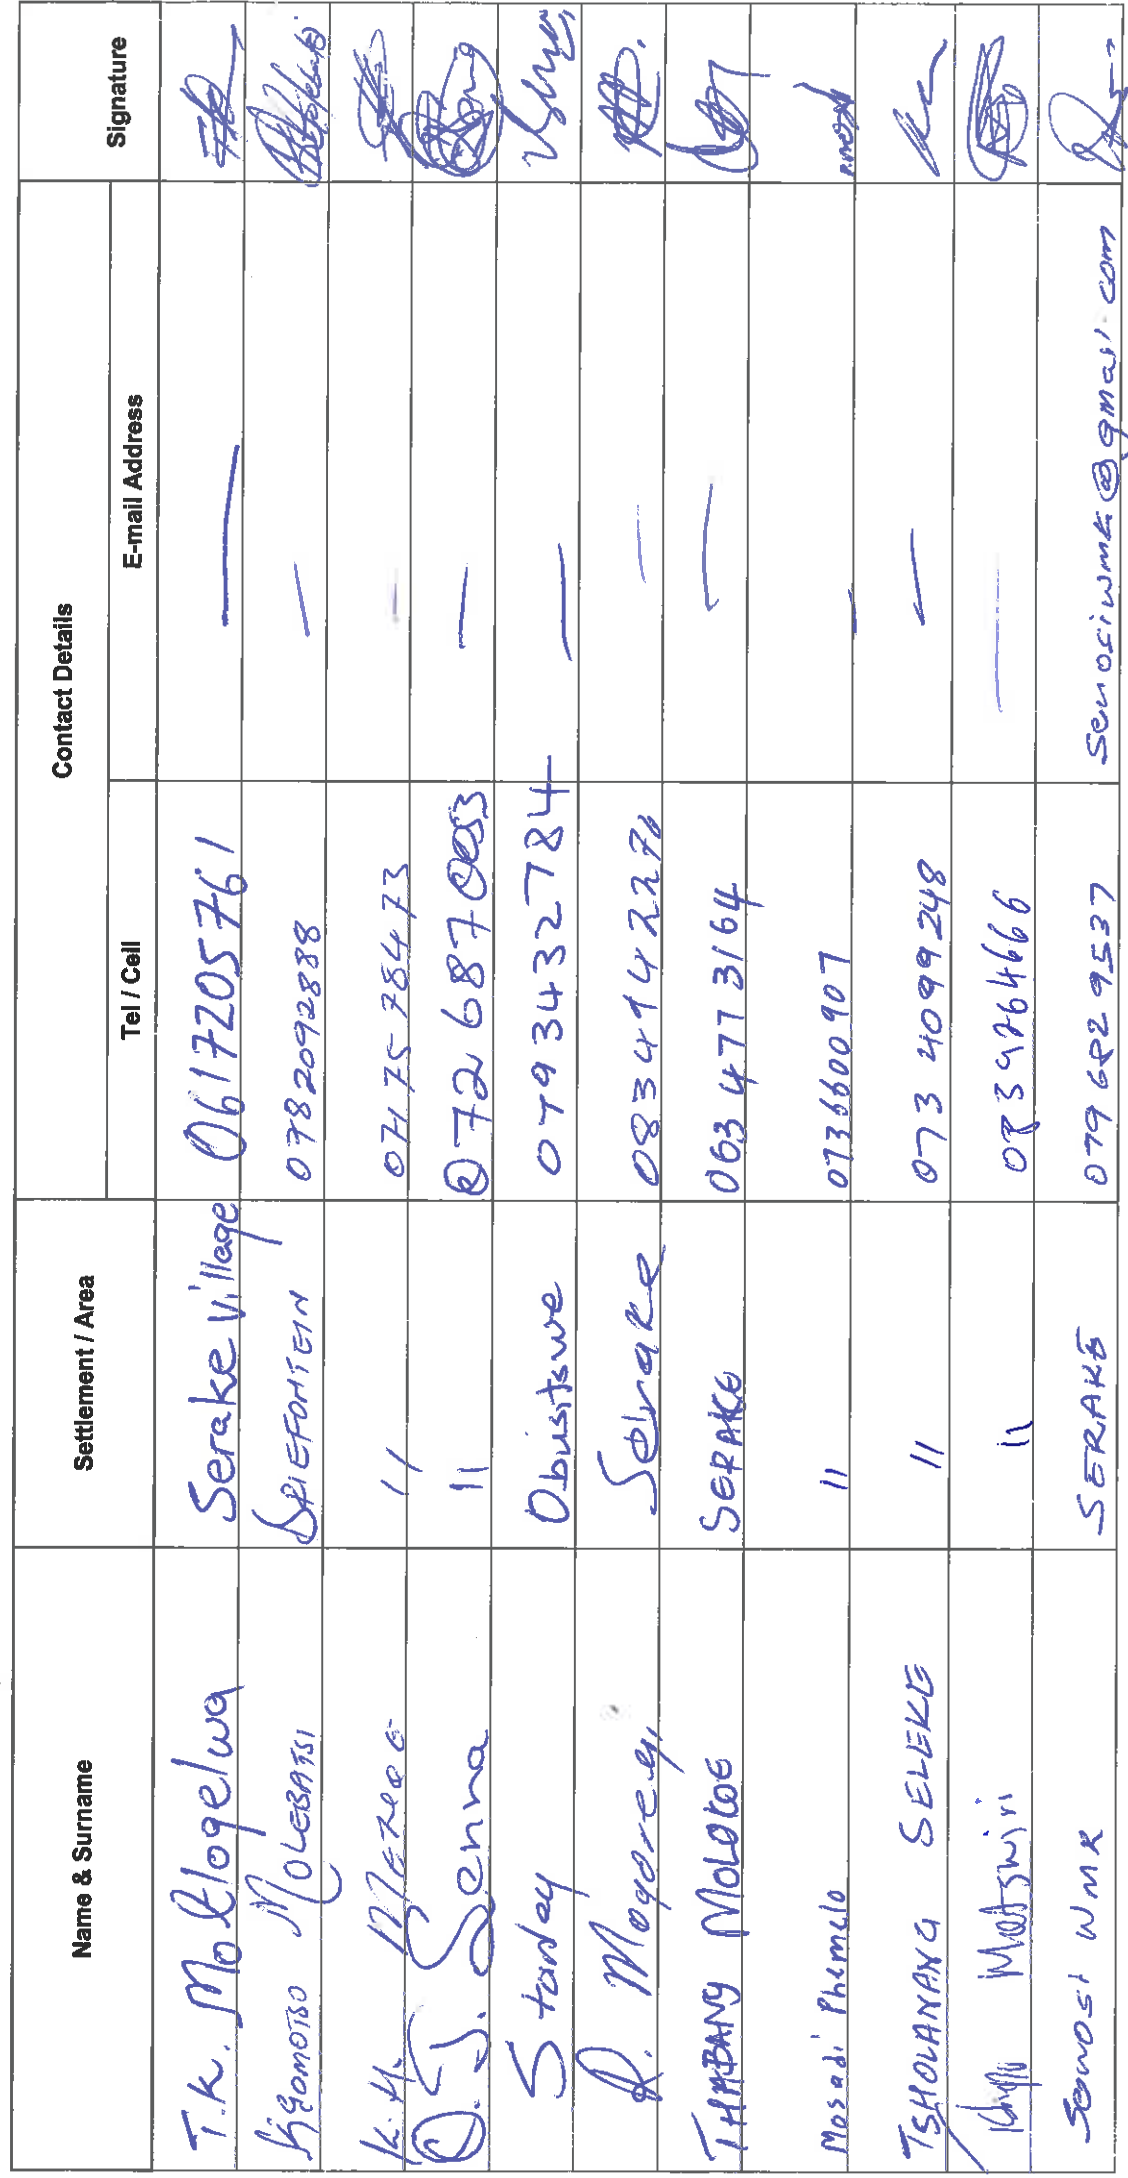 Name & Surname Settlement / Area Contact Details Signature
Tel / Cell E-mail Address
T.K. Motlogelwa Serake Village 0617205761 —
Kgomotso MOLEBATSI DRIEFONTEIN 0782092888 —
K.H. 〃 0717578473 —
O.J. Senna 〃 0726870053 —
Stanley Obusitswe 0793432784 —
R. Mogorosi 083494227 —
THABANG MOLOKOE SERAKE 063 477 3164 —
Mosadi Phemelo 〃 0736600907 —
TSHOLANANG SELEKE 〃 073 4099248 —
Matswiri 〃 —
Senosi WMK SERAKE 079 682 9537 senosiwmk@gmail.com